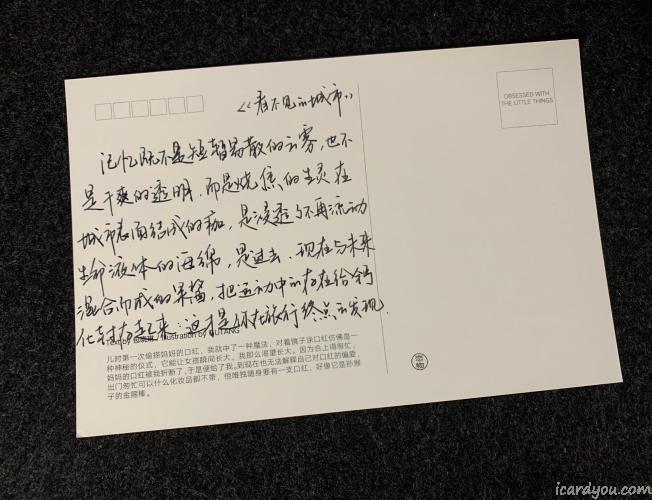 《看不见的城市》
OBSESSED WITH
THE LITTLE THINGS
记忆既不是短暂易散的云雾，也不
是干爽的透明，而是烧焦的生灵在
城市表面结成的痂，是浸透了不再流动
生命液体的海绵，是过去、现在与未来
混合而成的果酱，把运动中的存在给钙
化封存起来：这才是你在旅行终点的发现.
Illustration by OUTANG
儿时第一次偷搽妈妈的口红，我就中了一种魔法，对着镜子涂口红仿佛是一
种神秘的仪式，它能让女孩瞬间长大。我那么渴望长大。因为合上得匆忙，
妈妈的口红被我折断了，于是便给了我。到现在也无法解释自己对口红的偏爱，
出门匆忙可以什么化妆品都不带，但唯独随身要有一支口红，好像它是孙猴
子的金箍棒。
icardyou.com